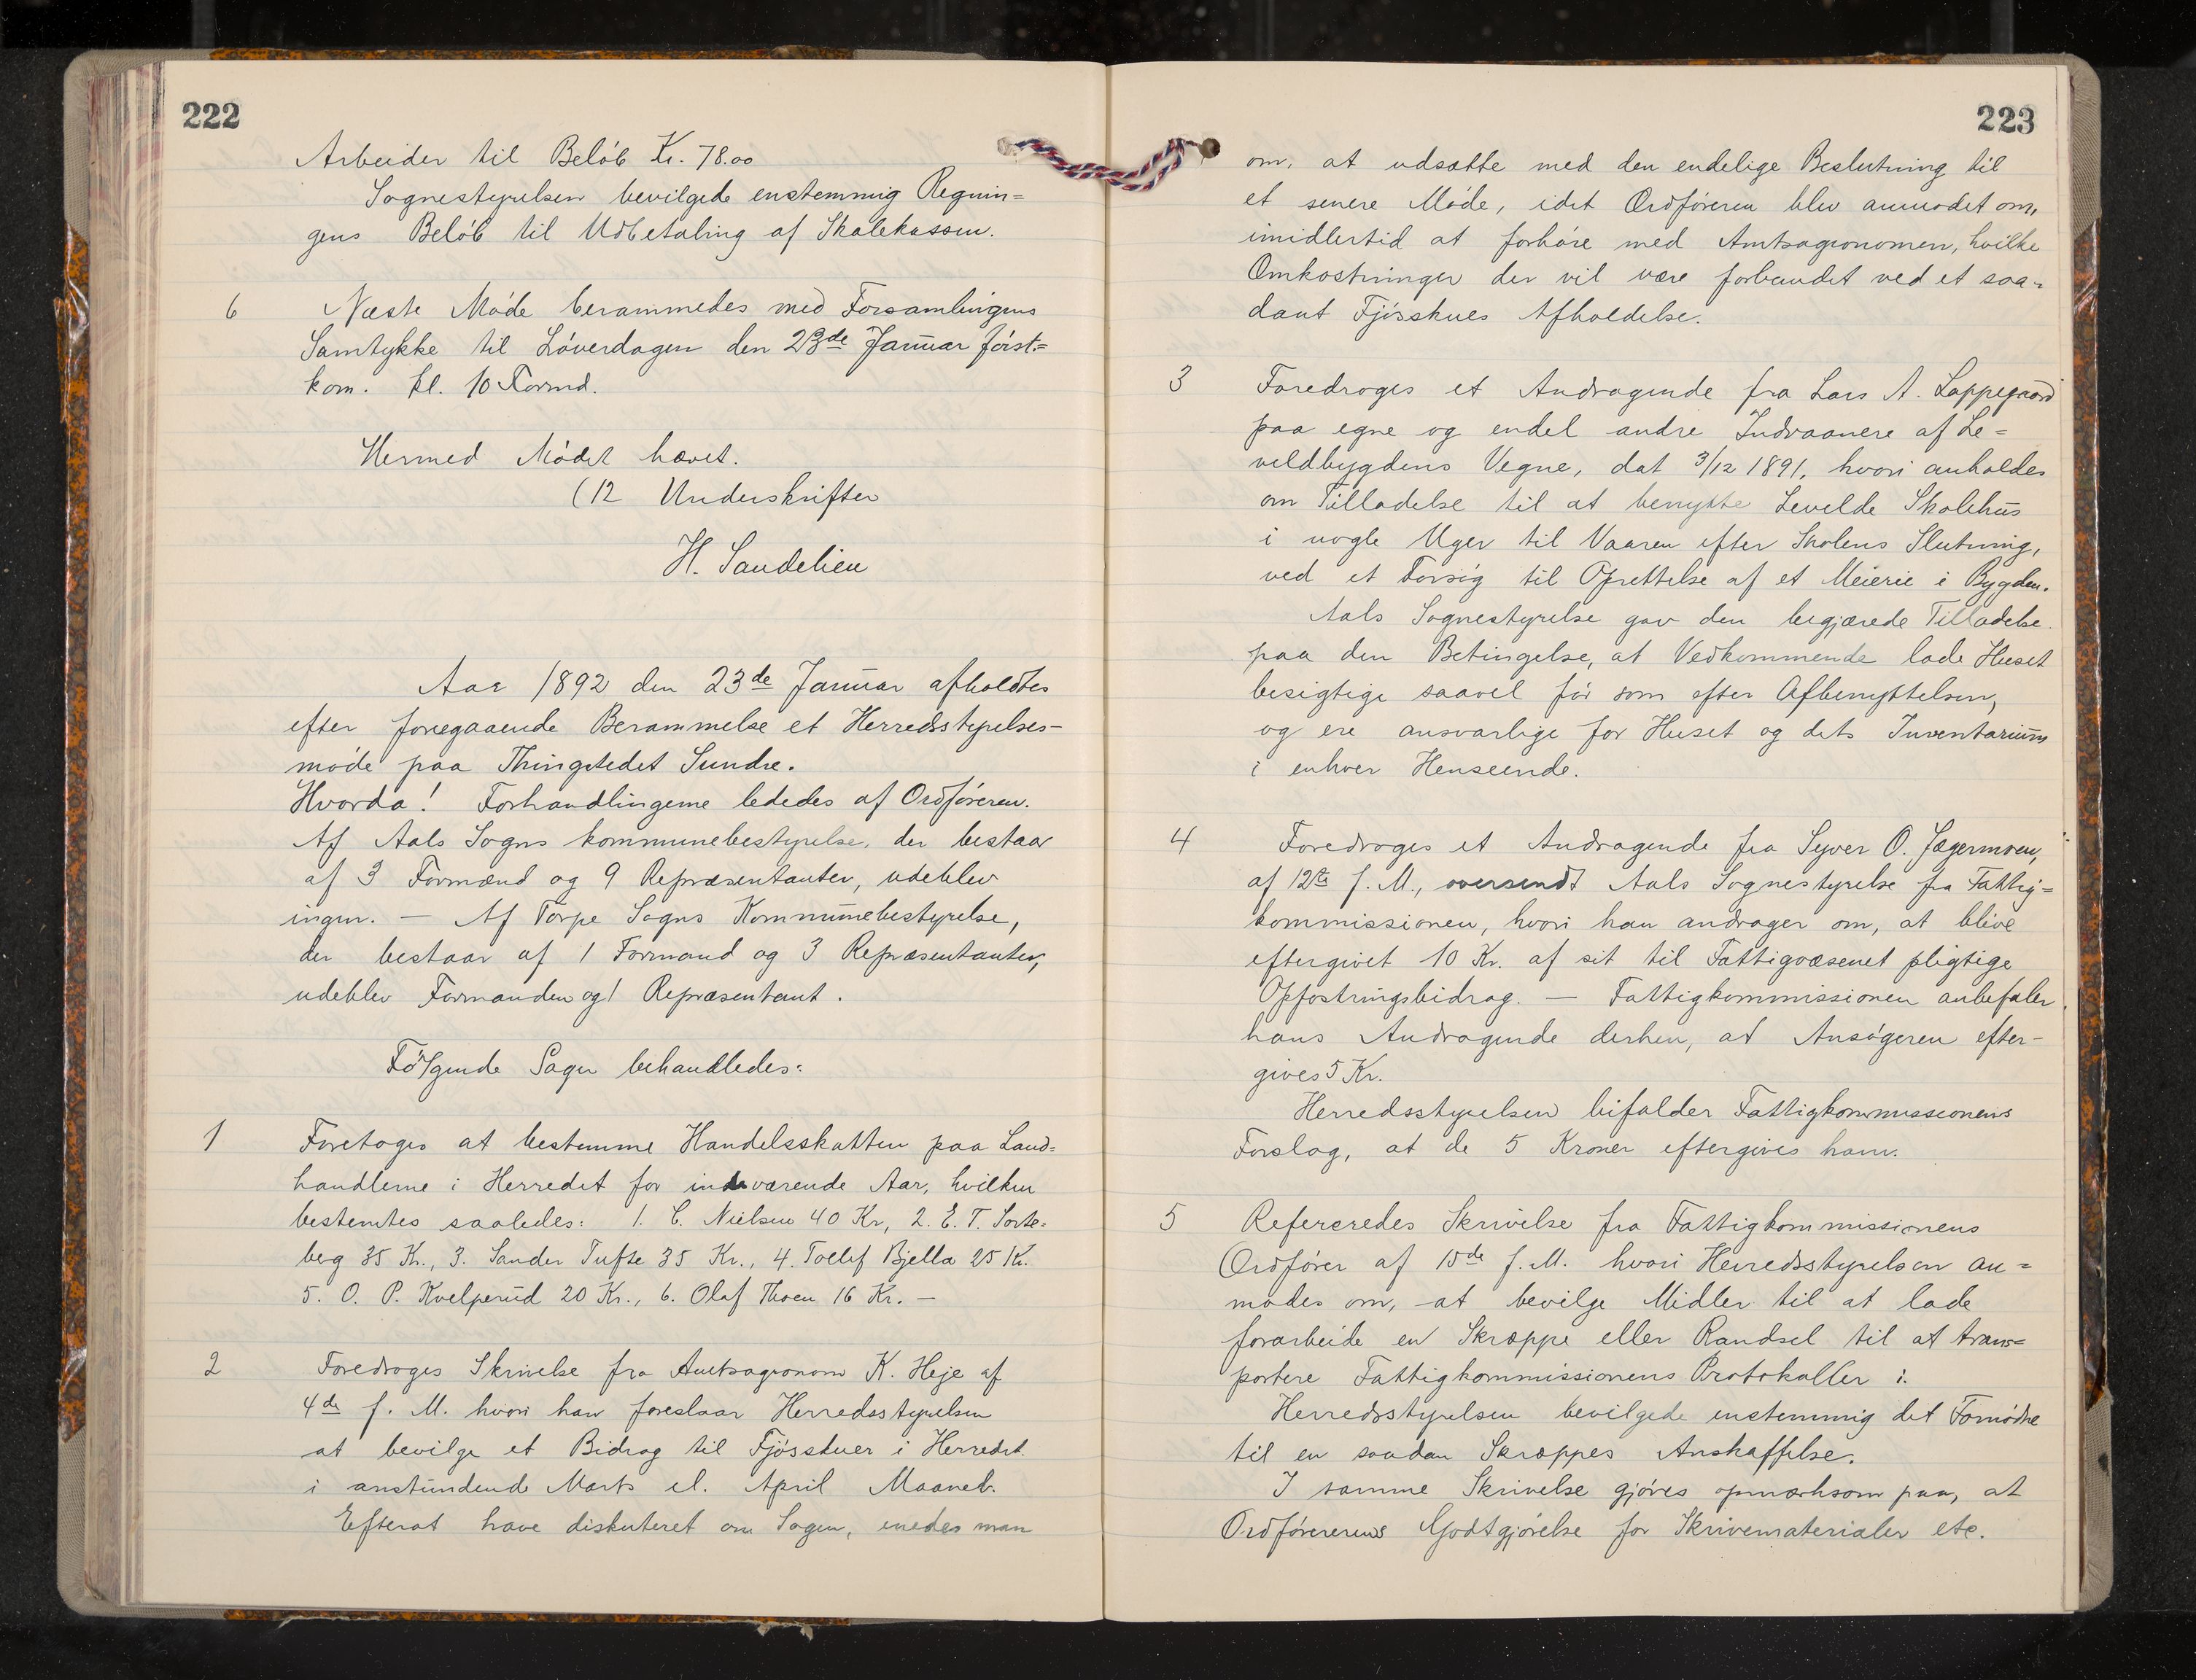 222
Arbeider til Beløb Kr. 78.00
Sognestyrelsen bevilgede enstemmig Regnin=
gens Beløb til Udbetaling af Skolekassen.
6 Næste Møde berammedes med Forsamlingens
Samtykke til Løverdagen den 23de Januar først.=
kom. kl. 10 Formd.
Hermed Mødet hævet.
(12 Underskrifter
H. Sandelien
Aar 1892 den 23de Januar afholdtes
efter foregaaende Berammelse et Herredsstyrelses-
møde paa Thingstedet Sundre.
Hvorda! Forhandlingerne lededes af Ordføreren.
Af Aals Sogns kommunebestyrelse, der bestaar
af 3 Formænd og 9 Repræsentanter, udeblev
ingen. — Af Torpe Sogns Kommunebestyrelse,
der bestaar af 1 Formand og 3 Repræsentanter,
udeblev Formanden og 1 Repræsentant.
Følgende Sager behandledes:
1 Foretoges at bestemme Handelsskatten paa Land=
handlerne i Herredet for indeværende Aar, hvilken
bestemtes saaledes: 1. C. Nielsen 40 Kr, 2. E. T. Sorte=
berg 35 Kr., 3. Sander Tufte 35 Kr., 4. Tollef Bjella 25 Kr.
5. O. P. Kvelprud 20 Kr., 6. Olaf Thoen 16 Kr. —
2 Foredroges Skrivelse fra Amtsagronom K. Heje af
4de f. M. hvori han foreslaar Herredsstyrelsen
at bevilge et Bidrag til Fjøsskuer i Herredet
i anstundende Marts el. April Maaned.
Efterat have diskuteret om Sagen, enedes man
223
om, at udsætte med den endelige Beslutning til
et senere Møde, idet Ordføreren blev anmodet om,
imidlertid at forhøre med Amtsagronomen, hvilke
Omkostninger der vil være forbundet ved et saa=
dant Fjøsskues Afholdelse.
3 Foredroges et Andragende fra Lars A. Loppegaard
paa egne og endel andre Indvaanere af Le=
veldbygdens Vegne, dat 3/12 1891, hvori anholdes
om Tilladelse til at benytte Levelde Skolehus
i nogle Uger til Vaaren efter Skolens Slutning,
ved et Forsøg til Oprettelse af et Meierie i Bygden.
Aals Sognestyrelse gav den begjærede Tilladelse
paa den Betingelse, at Vedkommende lade Huset
besigtige saavel før som efter Afbenyttelsen,
og ere ansvarlige for Huset og dets Inventarium
i enhver Henseende.
4 Foredroges et Andragende fra Syver O. Jægermoen,
af 12te f. M., oversendt Aals Sognestyrelse fra Fattig=
kommissionen, hvori han andrager om, at blive
eftergivet 10 Kr. af sit til Fattigvæsenet pligtige
Opfostringsbidrag. — Fattigkommissionen anbefaler
hans Andragende derhen, at Ansøgeren efter-
gives 5 Kr.
Herredsstyrelsen bifalder Fattigkommissionens
Forslag, at de 5 Kroner eftergives ham.
5 Refereredes Skrivelse fra Fattigkommissionens
Ordfører af 15de f. M. hvori Herredsstyrelsen an=
modes om, at bevilge Midler til at lade
forarbeide en Skræppe eller Randsel til at trans=
portere Fattigkommissionens Protokoller i.
Herredsstyrelsen bevilgede enstemmig det Fornødne
til en saadan Skræppes Anskaffelse.
I samme Skrivelse gjøres opmærksom paa, at
Ordførererens Godtgjørelse for Skrivematerialer etc.